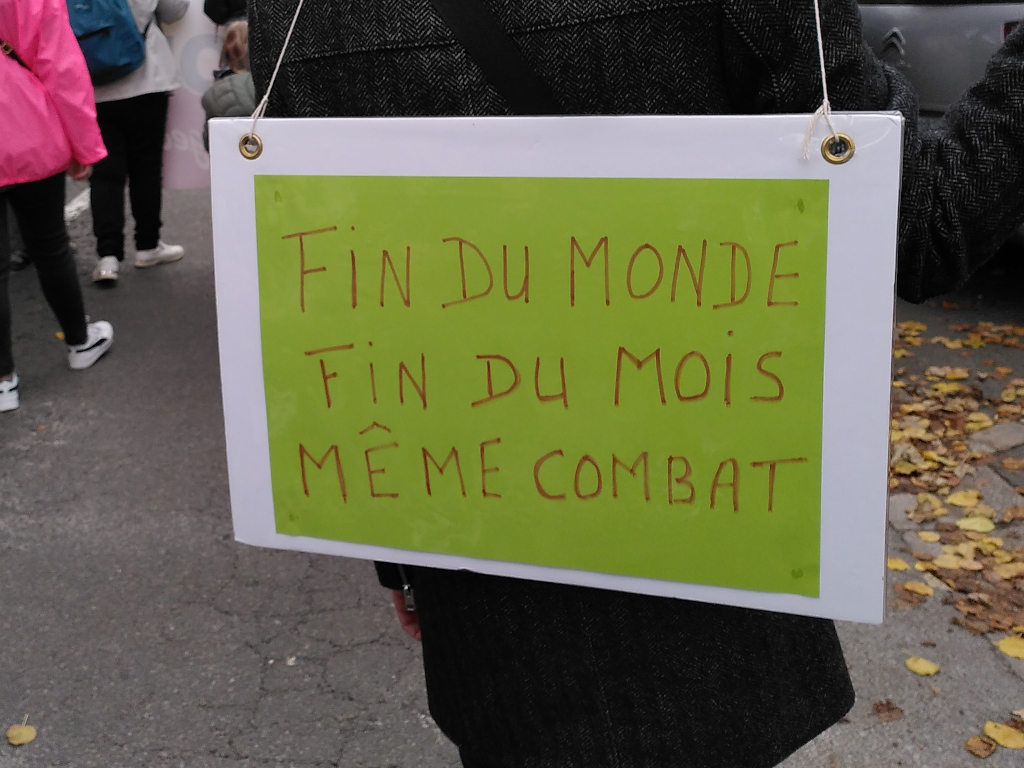 FIN DU MONDE
FIN DU MOIS
MÊME COMBAT